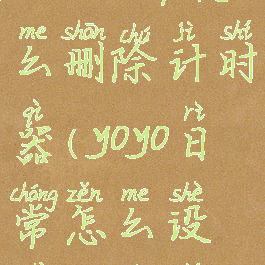 me shān chú jì shí
么删除计时
qì rì
器(yoyo日
cháng zěn me shè
常怎么设